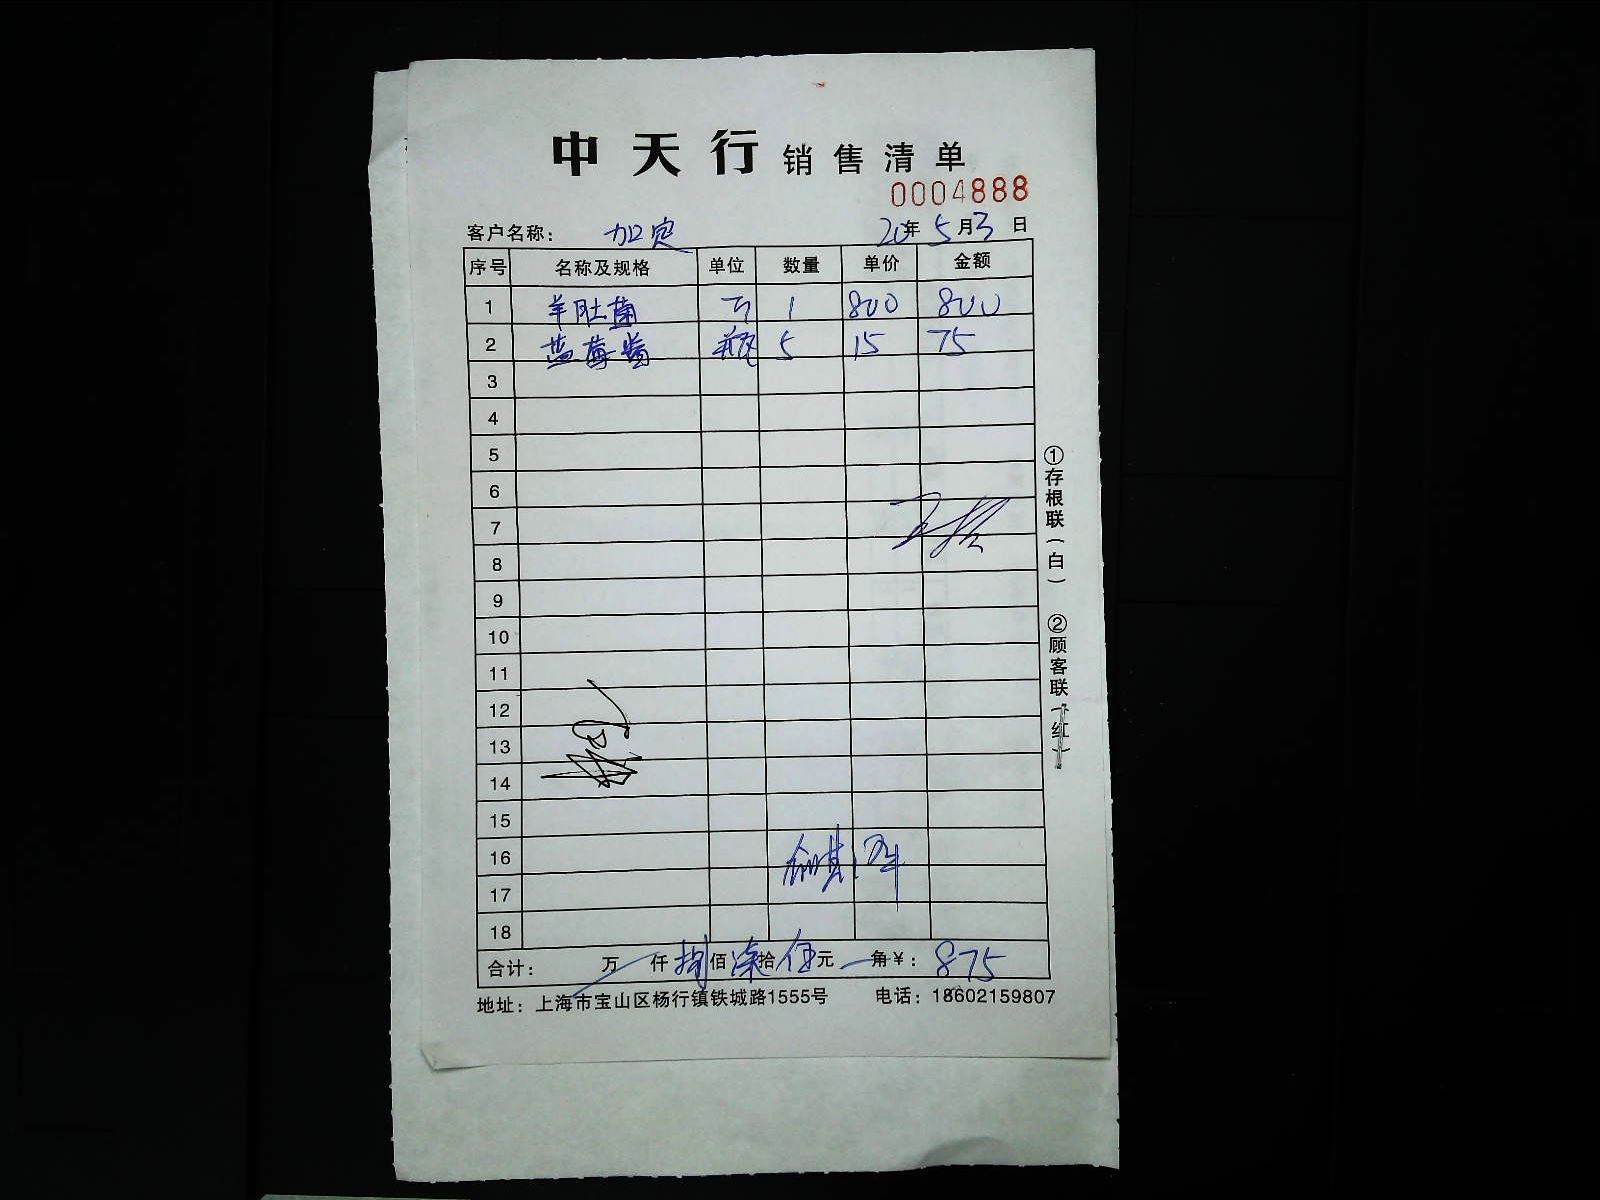 中天行 销售清单
0004888
客户名称: 加定 20年5月3日
序号 名称及规格 单位 数量 单价 金额
1 羊肚菌 1 800 800
2 蓝莓酱 瓶 5 15 75
3
4
5
6
7
8
9
10
11
12
13
14
15
16
17
18
合计: 万 仟 捌佰 柒拾 伍元 角¥: 875
地址: 上海市宝山区杨行镇铁城路1555号 电话: 18602159807
①存根联(白) ②顾客联(红)